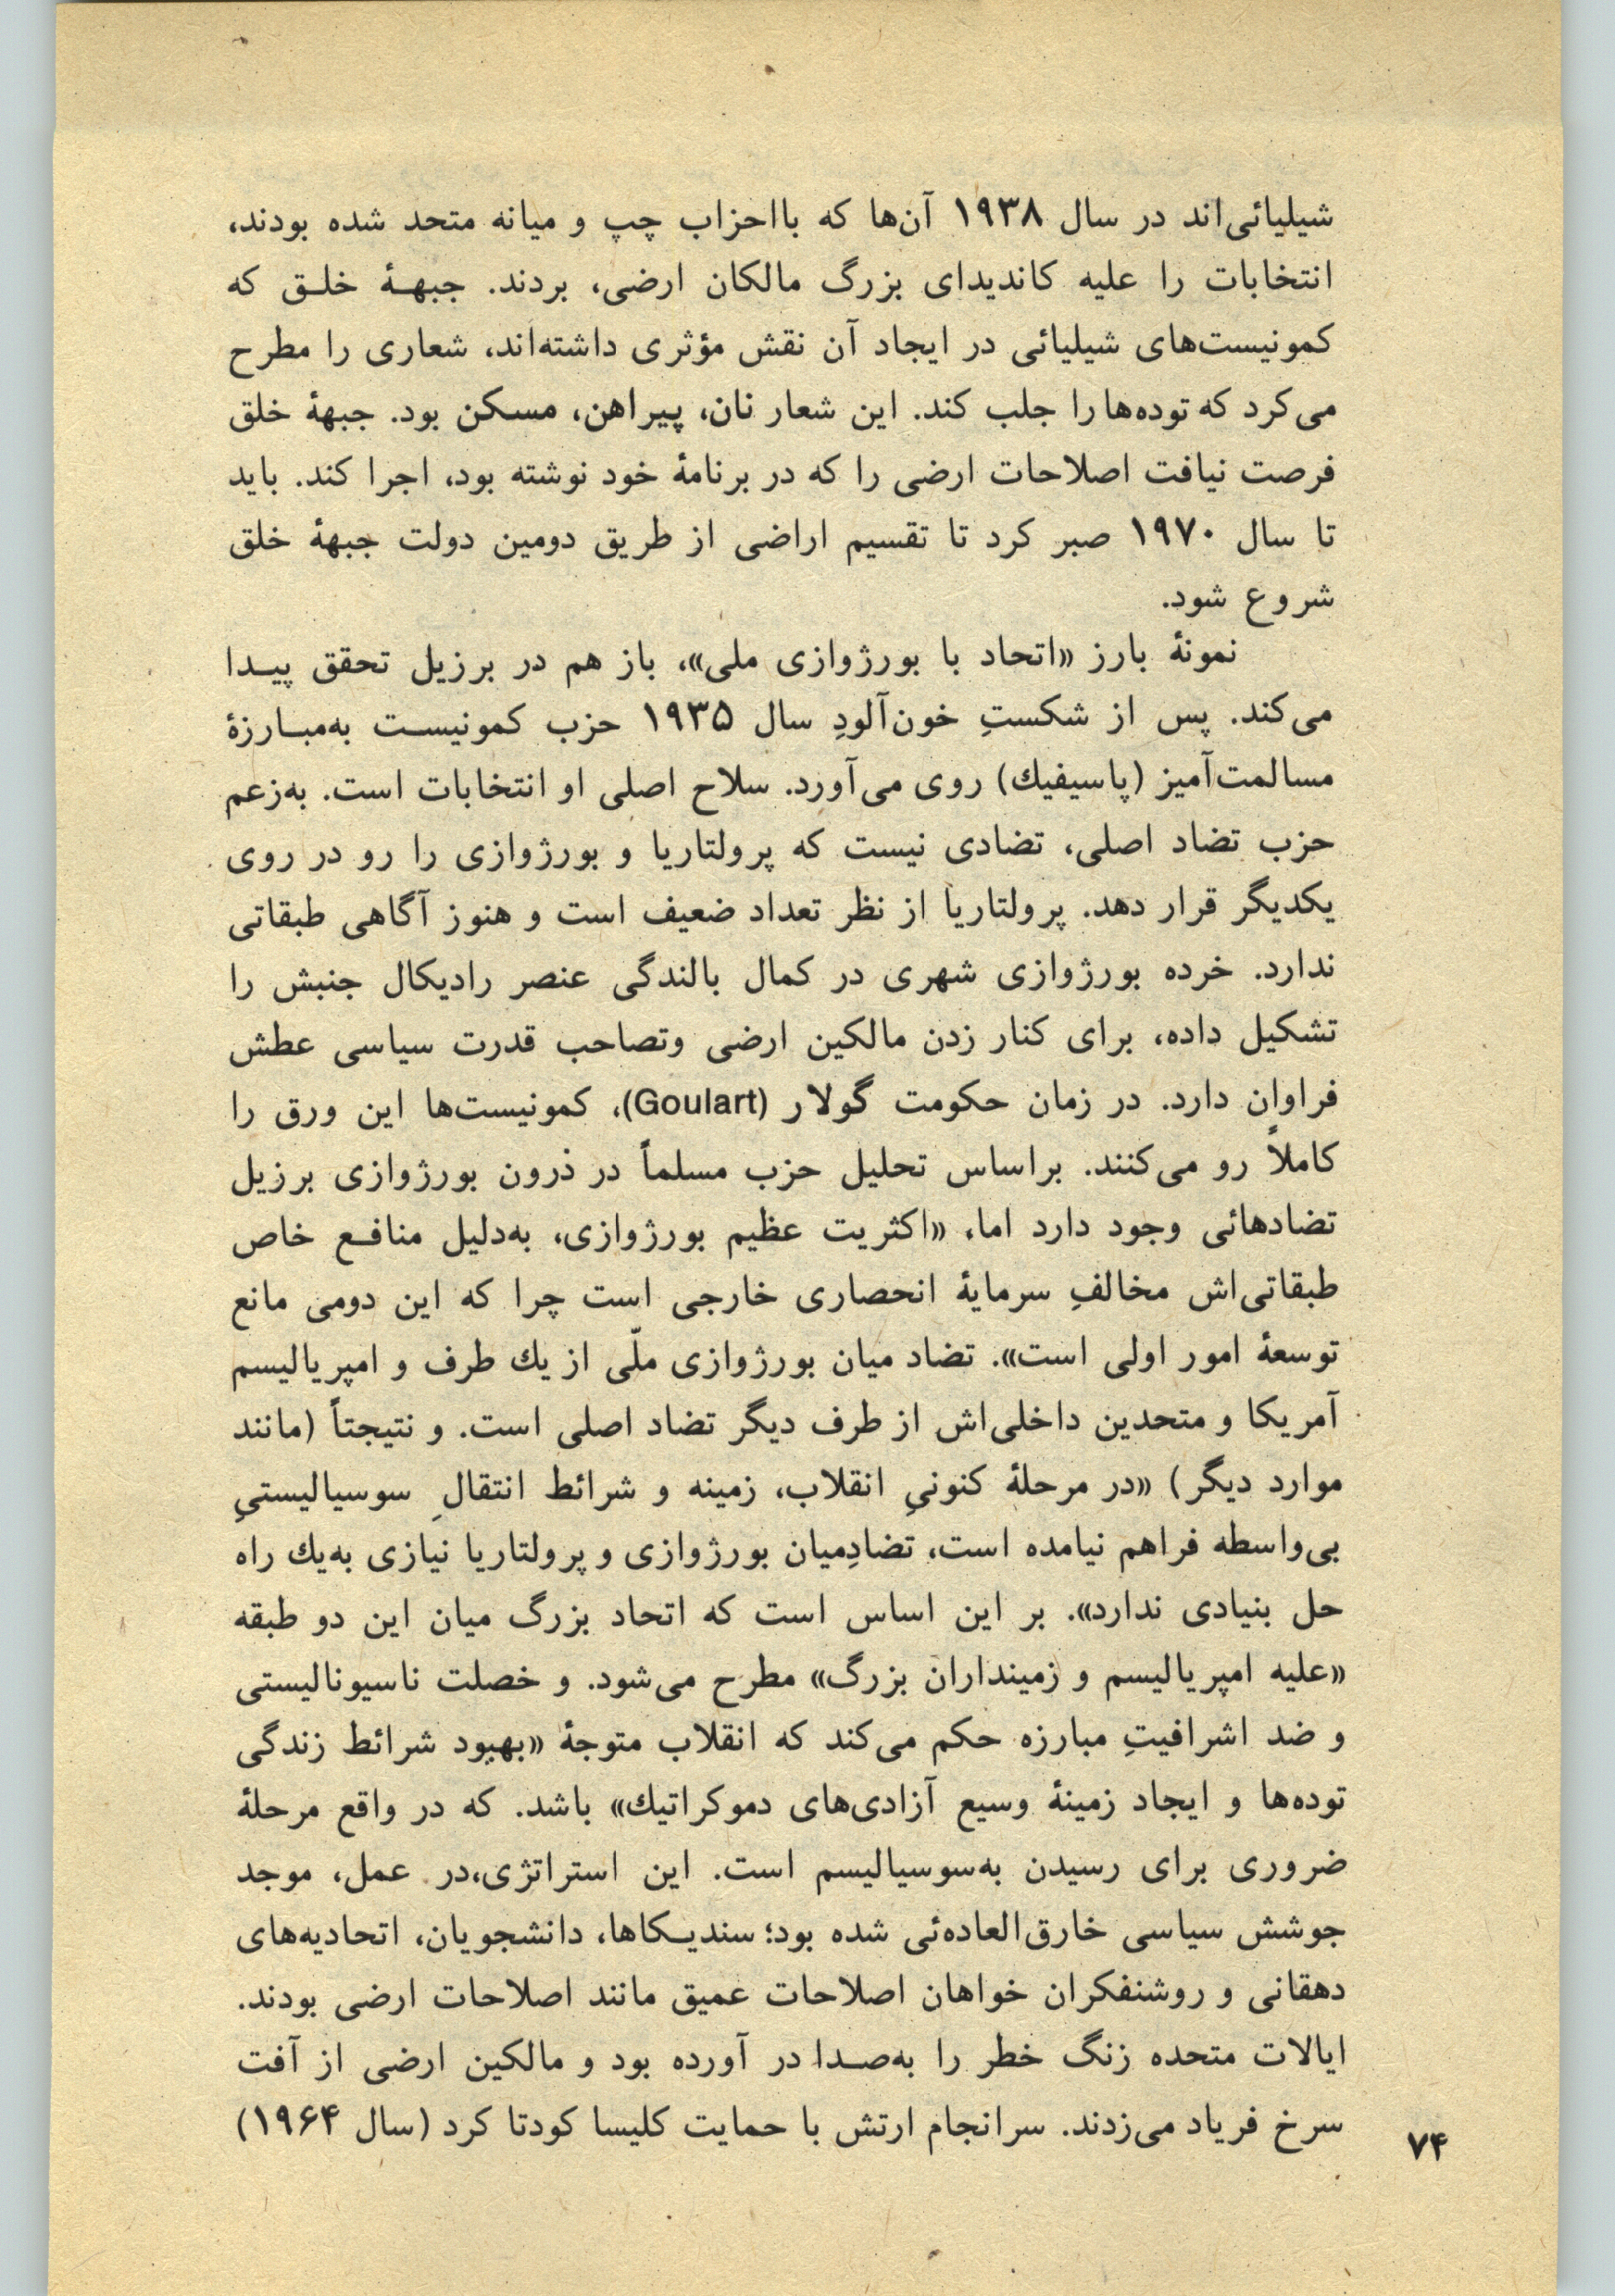 شیلیائی‌اند در سال ۱۹۳۸ آن‌ها که بااحزاب چپ و میانه متحد شده بودند،
انتخابات را علیه کاندیدای بزرگ مالکان ارضی، بردند. جبهـۀ خلـق که
کمونیست‌های شیلیائی در ایجاد آن نقش مؤثری داشته‌اند، شعاری را مطرح
می‌کرد که توده‌ها را جلب کند. این شعار نان، پیراهن، مسکن بود. جبهۀ خلق
فرصت نیافت اصلاحات ارضی را که در برنامۀ خود نوشته بود، اجرا کند. باید
تا سال ۱۹۷۰ صبر کرد تا تقسیم اراضی از طریق دومین دولت جبهۀ خلق
شروع شود.
نمونۀ بارز «اتحاد با بورژوازی ملی»، باز هم در برزیل تحقق پیـدا
می‌کند. پس از شکستِ خون‌آلودِ سال ۱۹۳۵ حزب کمونیسـت به‌مبـارزۀ
مسالمت‌آمیز (پاسیفیك) روی می‌آورد. سلاح اصلی او انتخابات است. به‌زعم
حزب تضاد اصلی، تضادی نیست که پرولتاریا و بورژوازی را رو در روی
یکدیگر قرار دهد. پرولتاریا از نظر تعداد ضعیف است و هنوز آگاهی طبقاتی
ندارد. خرده بورژوازی شهری در کمال بالندگی عنصر رادیکال جنبش را
تشکیل داده، برای کنار زدن مالکین ارضی وتصاحب قدرت سیاسی عطش
فراوان دارد. در زمان حکومت گولار (Goulart)، کمونیست‌ها این ورق را
کاملاً رو می‌کنند. براساس تحلیل حزب مسلماً در درون بورژوازی برزیل
تضادهائی وجود دارد اما، «اکثریت عظیم بورژوازی، به‌دلیل منافـع خاص
طبقاتی‌اش مخالفِ سرمایۀ انحصاری خارجی است چرا که این دومی مانع
توسعۀ امور اولی است». تضاد میان بورژوازی ملّی از یك طرف و امپریالیسم
آمریکا و متحدین داخلی‌اش از طرف دیگر تضاد اصلی است. و نتیجتاً (مانند
موارد دیگر) «در مرحلۀ کنونیِ انقلاب، زمینه و شرائط انتقالِ سوسیالیستیِ
بی‌واسطه فراهم نیامده است، تضادِمیان بورژوازی و پرولتاریا نیازی به‌یك راه
حل بنیادی ندارد». بر این اساس است که اتحاد بزرگ میان این دو طبقه
«علیه امپریالیسم و زمینداران بزرگ» مطرح می‌شود. و خصلت ناسیونالیستی
و ضد اشرافیتِ مبارزه حکم می‌کند که انقلاب متوجۀ «بهبود شرائط زندگی
توده‌ها و ایجاد زمینۀ وسیع آزادی‌های دموکراتیك» باشد. که در واقع مرحلۀ
ضروری برای رسیدن به‌سوسیالیسم است. این استراتژی،در عمل، موجد
جوشش سیاسی خارق‌العاده‌ئی شده بود؛ سندیـکاها، دانشجویان، اتحادیه‌های
دهقانی و روشنفکران خواهان اصلاحات عمیق مانند اصلاحات ارضی بودند.
ایالات متحده زنگ خطر را به‌صـدا در آورده بود و مالکین ارضی از آفت
سرخ فریاد می‌زدند. سرانجام ارتش با حمایت کلیسا کودتا کرد (سال ۱۹۶۴)
۷۴